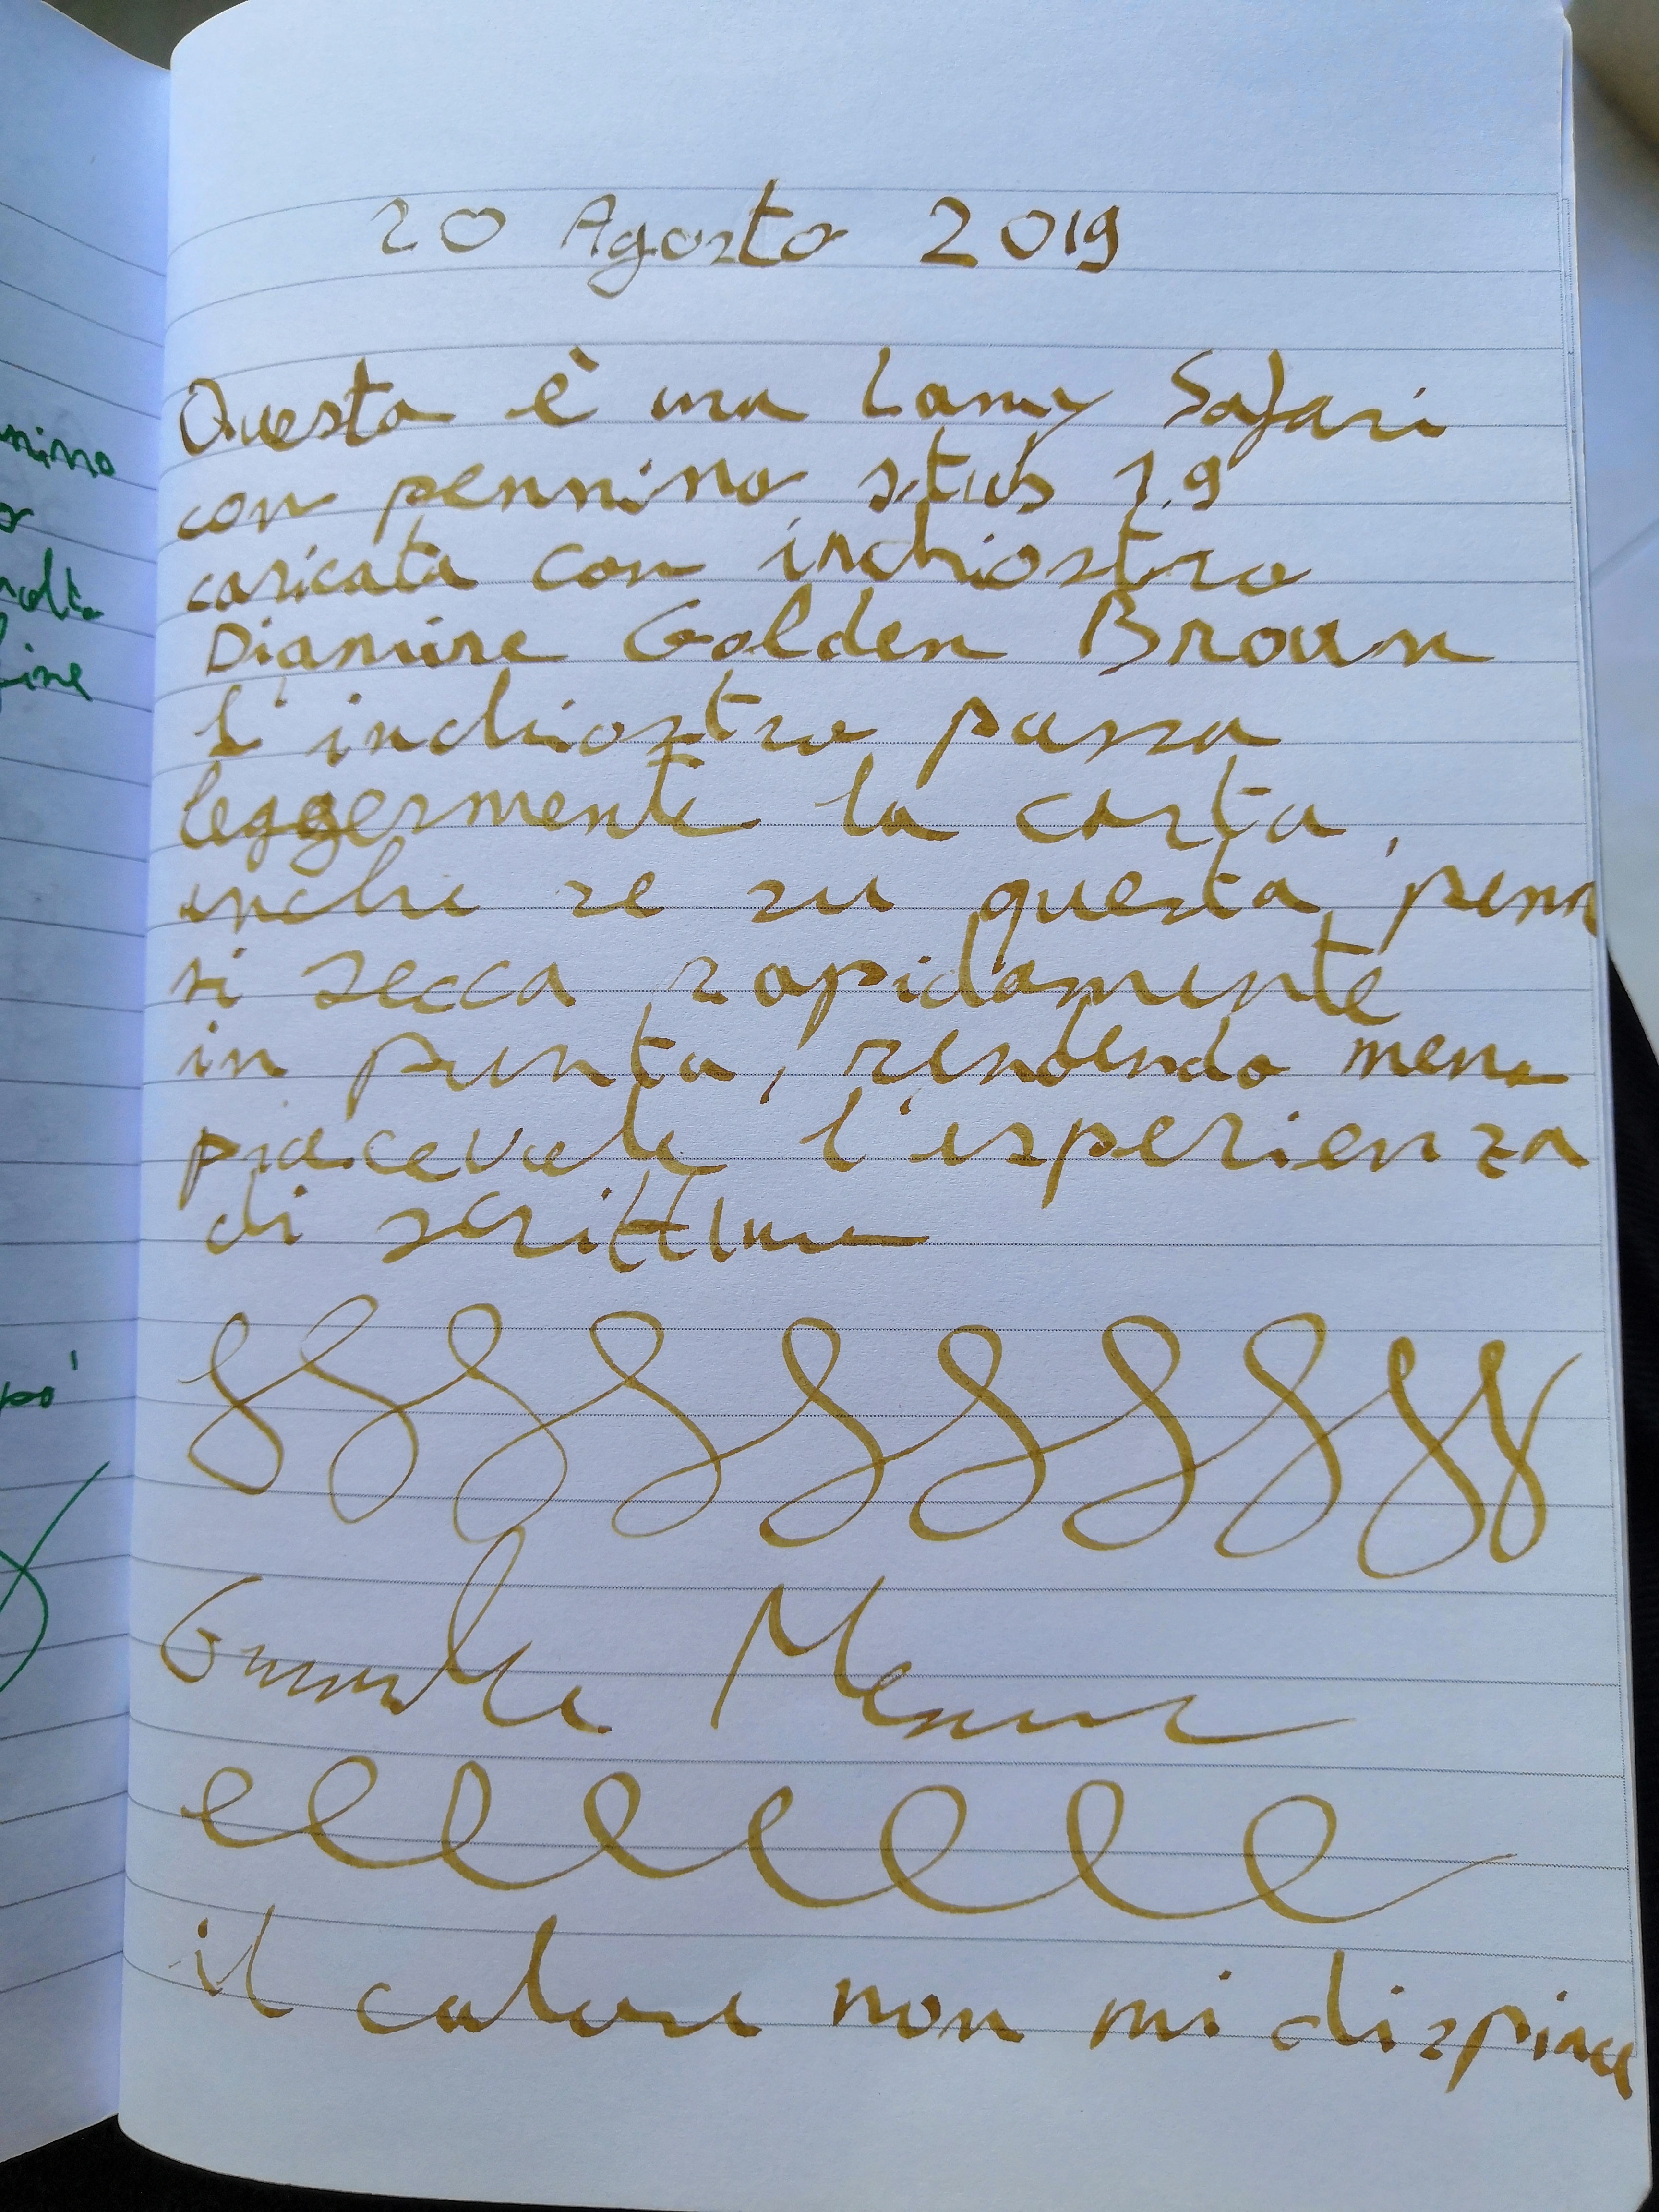 20 Agosto 2019
Questa è una Lamy Safari
con pennino stub 1.9
caricata con inchiostro
Diamine Golden Brown
L'inchiostro passa
leggermente la carta,
anche se su questa penna
si secca rapidamente
in punta, rendendo meno
piacevole l'esperienza
di scrittura
il colore non mi dispiace
nino
molto
fine
po'